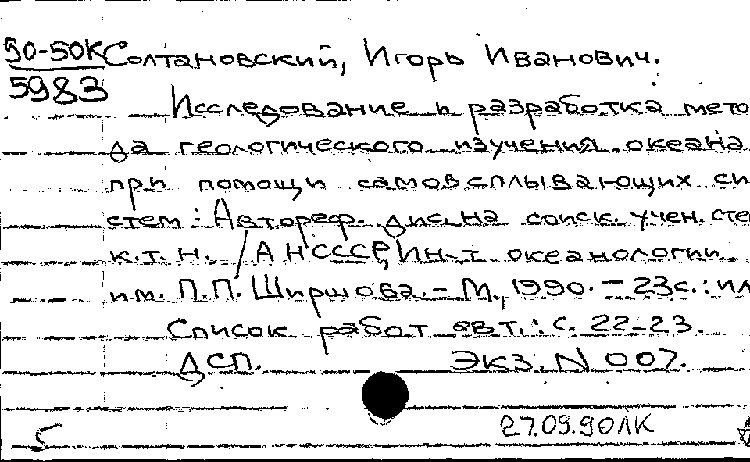 50-50К Солтановский, Игорь Иванович.
5983
Исследование и разработка мето
да геологического изучения океана
при помощи самовсплывающих си
стем: Автореф. дис. на соиск. учен. сте
к.т.н. / АН СССР, Ин-т океанологии
им. П.П. Ширшова. - М., 1990. - 23с.: ил
Список работ авт.: с. 22-23.
ДСП. Экз. N 007.
27.09.90ЛК
5